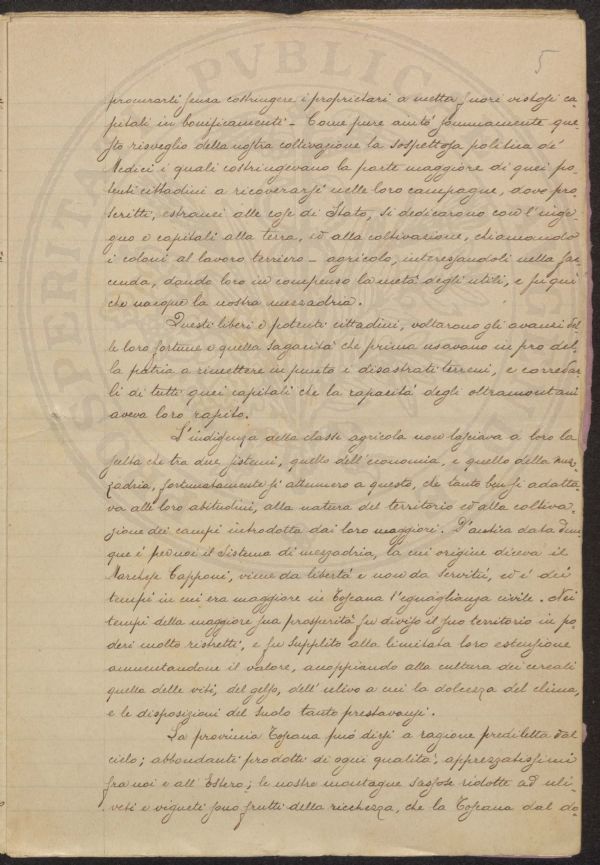 5
procurarti senza costringere i proprietari a metta fuori vistosi ca-
pitali in bonificamenti – Come pure aiutò sommamente que-
sto risveglio della nostra coltivazione la sospettosa politica de'
Medici i quali costringevano la parte maggiore di quei po-
tenti cittadini a ricoverarsi nelle loro campagne, dove pro-
scritti, estranei alle cose di Stato, si dedicarono con l'inge-
gno e capitali alla terra, ed alla coltivazione, chiamando
i coloni al lavoro terriero – agricolo, interessandoli nella fac-
cenda, dando loro in compenso la metà degli utili, e fu qui
che nacque la nostra mezzadria.
Questi liberi e potenti cittadini, voltarono gli avanzi del-
le loro fortune e quella sagacità che prima usavano in pro del-
la patria a rimettere in punto i disastrati terreni, e corredar-
li di tutti quei capitali che la rapacità degli oltramontani
aveva loro rapito.
L'indigenza della classe agricola non lasciava a loro la
scelta che tra due sistemi, quello dell'economia, e quello della mez-
zadria, fortunatamente si attennero a questo, che tanto ben si adatta-
va alle loro abitudini, alla natura del territorio ed alla coltiva-
zione dei campi introdotta dai loro maggiori. D'antica data dun-
que è per noi il sistema di mezzadria, la cui origine diceva il
Marchese Capponi, viene da libertà e non da servitù, ed è dei
tempi in cui era maggiore in Toscana l'eguaglianza civile. Nei
tempi della maggiore sua prosperità fu diviso il suo territorio in po-
deri molto ristretti, e fu supplito alla limitata loro estensione
aumentandone il valore, accoppiando alla cultura dei cereali
quella delle viti, del gelso, dell'ulivo a cui la dolcezza del clima,
e le disposizioni del suolo tanto prestavansi.
La provincia Toscana può dirsi a ragione prediletta dal
cielo; abbondanti prodotti di ogni qualità, apprezzatissimi
fra noi e all'Estero; le nostre montagne sassose ridotte ad uli-
veti e vigneti sono frutti della ricchezza, che la Toscana dal do-